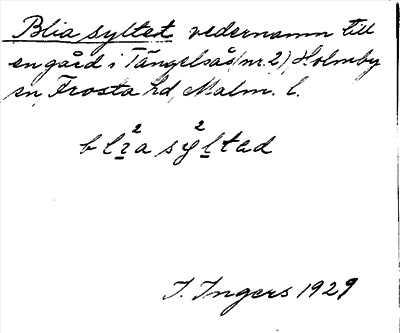 Blia syltet vedernamn till
en gård i Tängelsås (nr. 2), Holmby
sn, Frosta hd, Malm. l.
blɪ²a sy²ltad
I. Ingers 1929